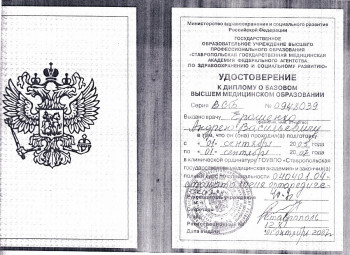 Министерство здравоохранения и социального развития
Российской Федерации
ГОСУДАРСТВЕННОЕ
ОБРАЗОВАТЕЛЬНОЕ УЧРЕЖДЕНИЕ ВЫСШЕГО
ПРОФЕССИОНАЛЬНОГО ОБРАЗОВАНИЯ
«СТАВРОПОЛЬСКАЯ ГОСУДАРСТВЕННАЯ МЕДИЦИНСКАЯ
АКАДЕМИЯ ФЕДЕРАЛЬНОГО АГЕНТСТВА
ПО ЗДРАВООХРАНЕНИЮ И СОЦИАЛЬНОМУ РАЗВИТИЮ»
УДОСТОВЕРЕНИЕ
К ДИПЛОМУ О БАЗОВОМ
ВЫСШЕМ МЕДИЦИНСКОМ ОБРАЗОВАНИИ
Серия № 0943039
Выдано врачу Ерошенко
Андрею Васильевичу
в том, что он (она) проходил(а) подготовку
с «01» сентября 2005
по «01» сентября
в клинической ординатуре ГОУВПО «Ставропольская
государственная медицинская академия» и закончил(а)
полный курс по специальности 040401.09
стоматология ортопедическая
Секретарь
Город Ставрополь
Дата выдачи октября 2007